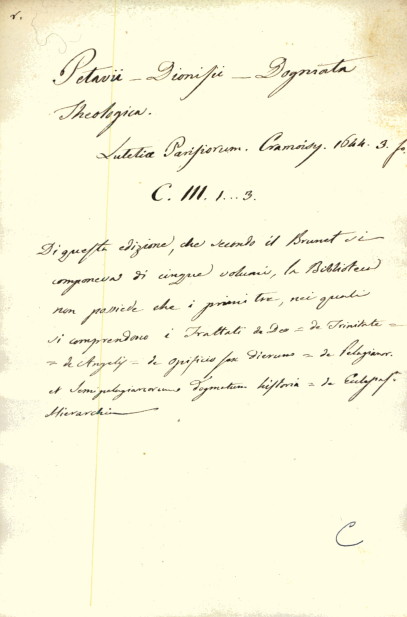 Petavii – Dionisii – Dogmata
Theologica.
Lutetiæ Parisiorum. Cramoisy. 1644. 3. fo
C. III. 1...3.
Di questa edizione, che secondo il Brunet si
componeva di cinque volumi, la Biblioteca
non possiede che i primi tre, nei quali
si comprendono i Trattati de Deo = de Trinitate =
= de Angelis = de opificio sex dierum = de Pelagianor.
et Semipelagianorum dogmatum historia = de Eccles.
Hierarchia
C